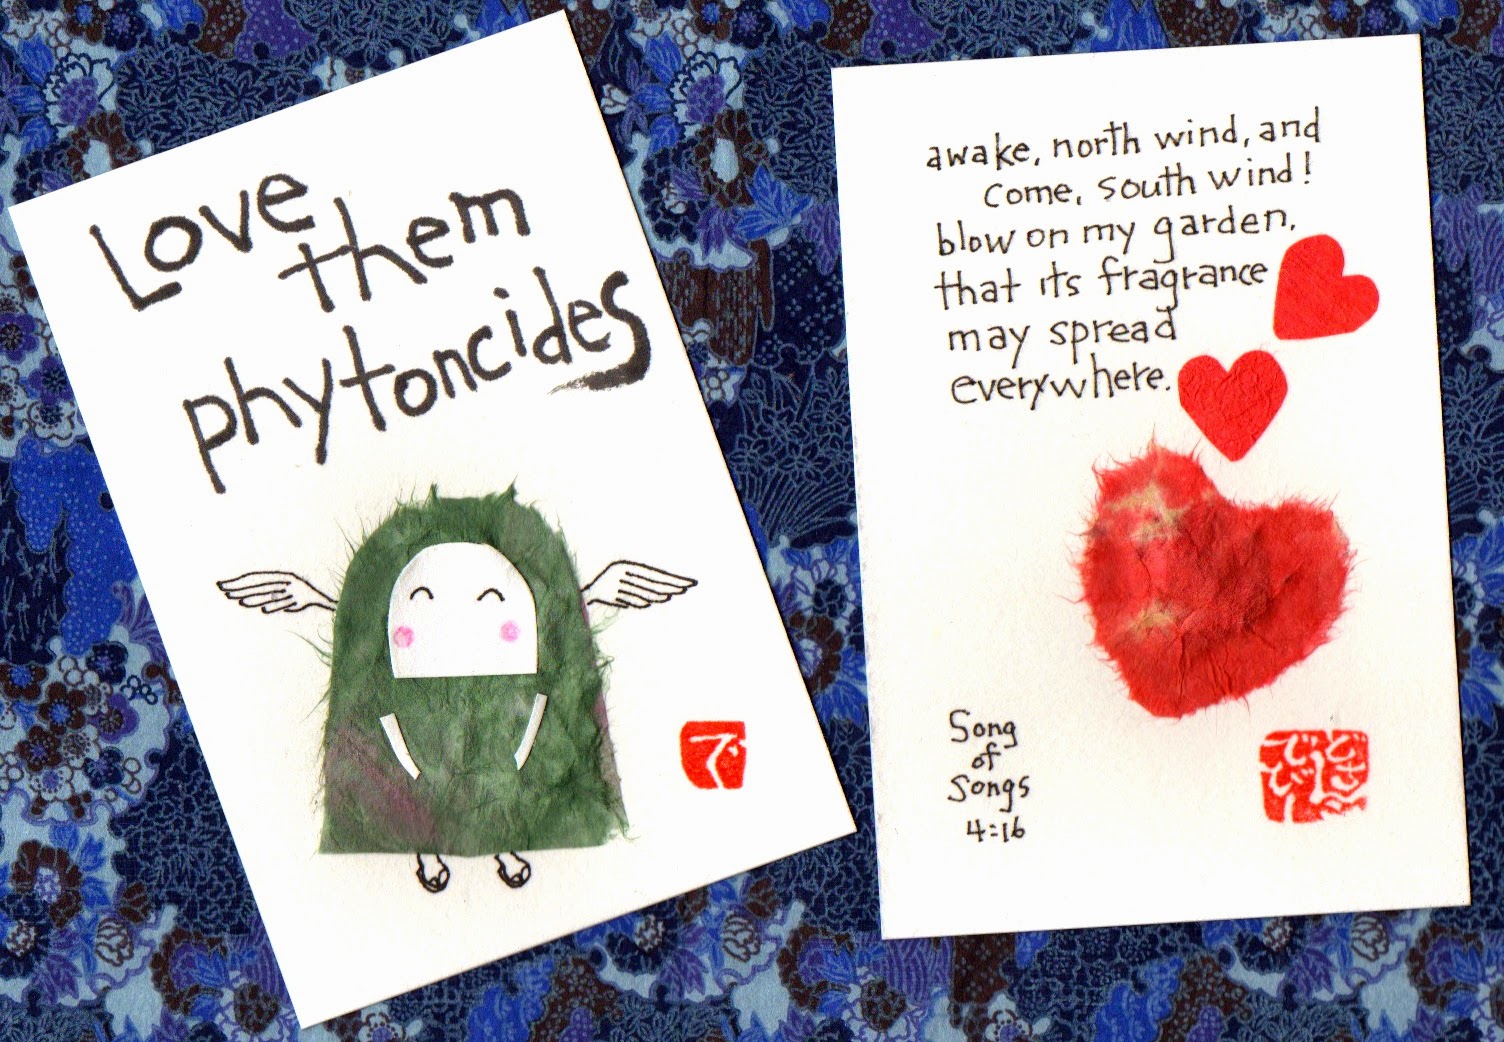 Love
them
phytoncides
で
awake, north wind, and
come, south wind!
blow on my garden,
that its fragrance
may spread
everywhere.
Song
of
Songs
4:16